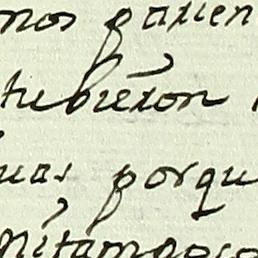 nos parien
tubieron
uas porqu
ni tampoco